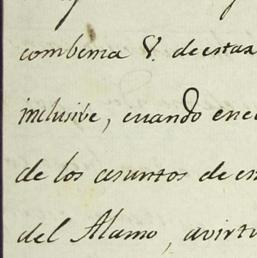 combenia V. de estas
inclusive, cuando en
de los asuntos de
del Alamo, avirtu